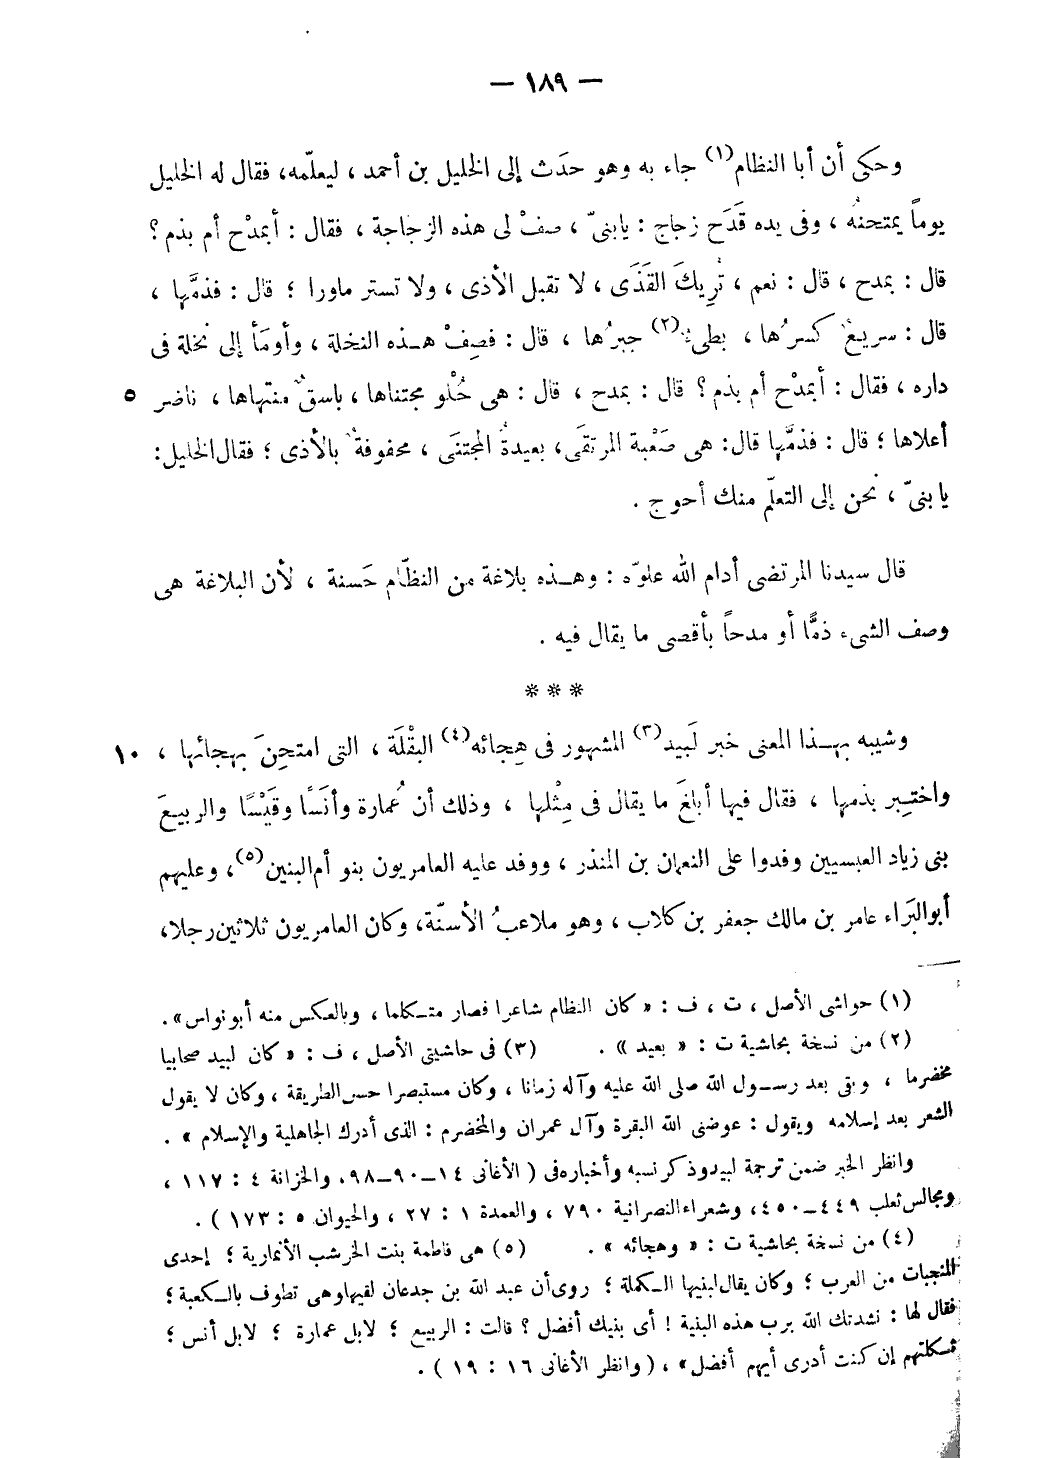 — ١٨٩ —
وحكى أن أبا النظام(١) جاء به وهو حدَث إلى الخليل بن أحمد ، ليعلّمه، فقال له الخليل
يوماً يمتحنُه ، وفى يده قَدَح زجاج : يابنىّ ، صفْ لى هذه الزجاجة ، فقال : أبمدْح أم بذم ؟
قال : بمدح ، قال : نعم ، تُرِيكَ القَذَى ، لا تقبل الأذى ، ولا تستر ماورا ؛ قال : فذمَّها ،
قال : سريعٌ كسرُها ، بطىءٌ(٢) جبرُها ، قال : فصِفْ هـذه النخلة ، وأومَأ إلى نخلة فى
داره ، فقال : أبمدْح أم بذم ؟ قال : بمدح ، قال : هى حُلْو مجتناها ، باسقٌ منتهاها ، ناضر ٥
أعلاها ؛ قال : فذمَّها قال: هى صَعْبة المرتقَى، بعيدةُ المجتنَى ، محفوفةٌ بالأذى ؛ فقال الخليل:
يا بنىّ ، نحن إلى التعلّم منك أحوج .
قال سيدنا المرتضى أدام الله علوّه : وهـذه بلاغة من النظّام حَسنة ، لأن البلاغة هى
وصف الشىء ذمًّا أو مدحاً بأقصى ما يقال فيه .
* * *
وشبيه بهـذا المعنى خبر لَبيد(٣) المشهور فى هِجائه(٤) البقْلَة ، التى امتحِنَ بهجائها ، ١٠
واختـبِر بذمها ، فقال فيها أبلغَ ما يقال فى مِثْلها ، وذلك أن عُمارة وأنَسًا وقَيْسًا والربيعَ
بنى زياد العبسيين وفدوا على النعمان بن المنذر ، ووفد عليه العامريون بنو أم البنين(٥)، وعليهم
أبوالبَراء عامر بن مالك جعفر بن كلاب ، وهو ملاعبُ الأسنّة، وكان العامريون ثلاثين رجلا،
(١) حواشى الأصل ، ت ، ف : « كان النظام شاعرا فصار متـكلما ، وبالعكس منه أبو نواس».
(٢) من نسخة بحاشية ت : « بعيد » . (٣) فى حاشيتى الأصل ، ف : « كان لبيد صحابيا
مخضرما ، وبقى بعد رسـول الله صلى الله عليه وآله زمانا ، وكان مستبصرا حسن الطريقة ، وكان لا يقول
الشعر بعد إسلامه ويقول : عوضنى الله البقرة وآل عمران والمخضرم : الذى أدرك الجاهلية والإسلام » .
وانظر الخبر ضمن ترجمة لبيد وذكر نسبه وأخباره فى ( الأغانى ١٤ــ٩٠ــ٩٨، والخزانة ٤ : ١١٧ ،
ومجالس ثعلب ٤٤٩ــ٤٥٠، وشعراء النصرانية ٧٩٠ ، والعمدة ١ : ٢٧ ، والحيوان ٥ : ١٧٣ ) .
(٤) من نسخة بحاشية ت : « وهجائه » . (٥) هى فاطمة بنت الخرشب الأنمارية ؛ إحدى
المنجبات من العرب ؛ وكان يقال لبنيها الـكملة ؛ روى أن عبد الله بن جدعان لقيها وهى تطوف بالـكعبة ؛
فقال لها : نشدتك الله برب هذه البنية ! أى بنيك أفضل ؟ قالت : الربيع ؛ لابل عمارة ؛ لابل أنس ؛
ثـكلتهم إن كنت أدرى أيهم أفضل» ، ( وانظر الأغانى ١٦ : ١٩ ) .